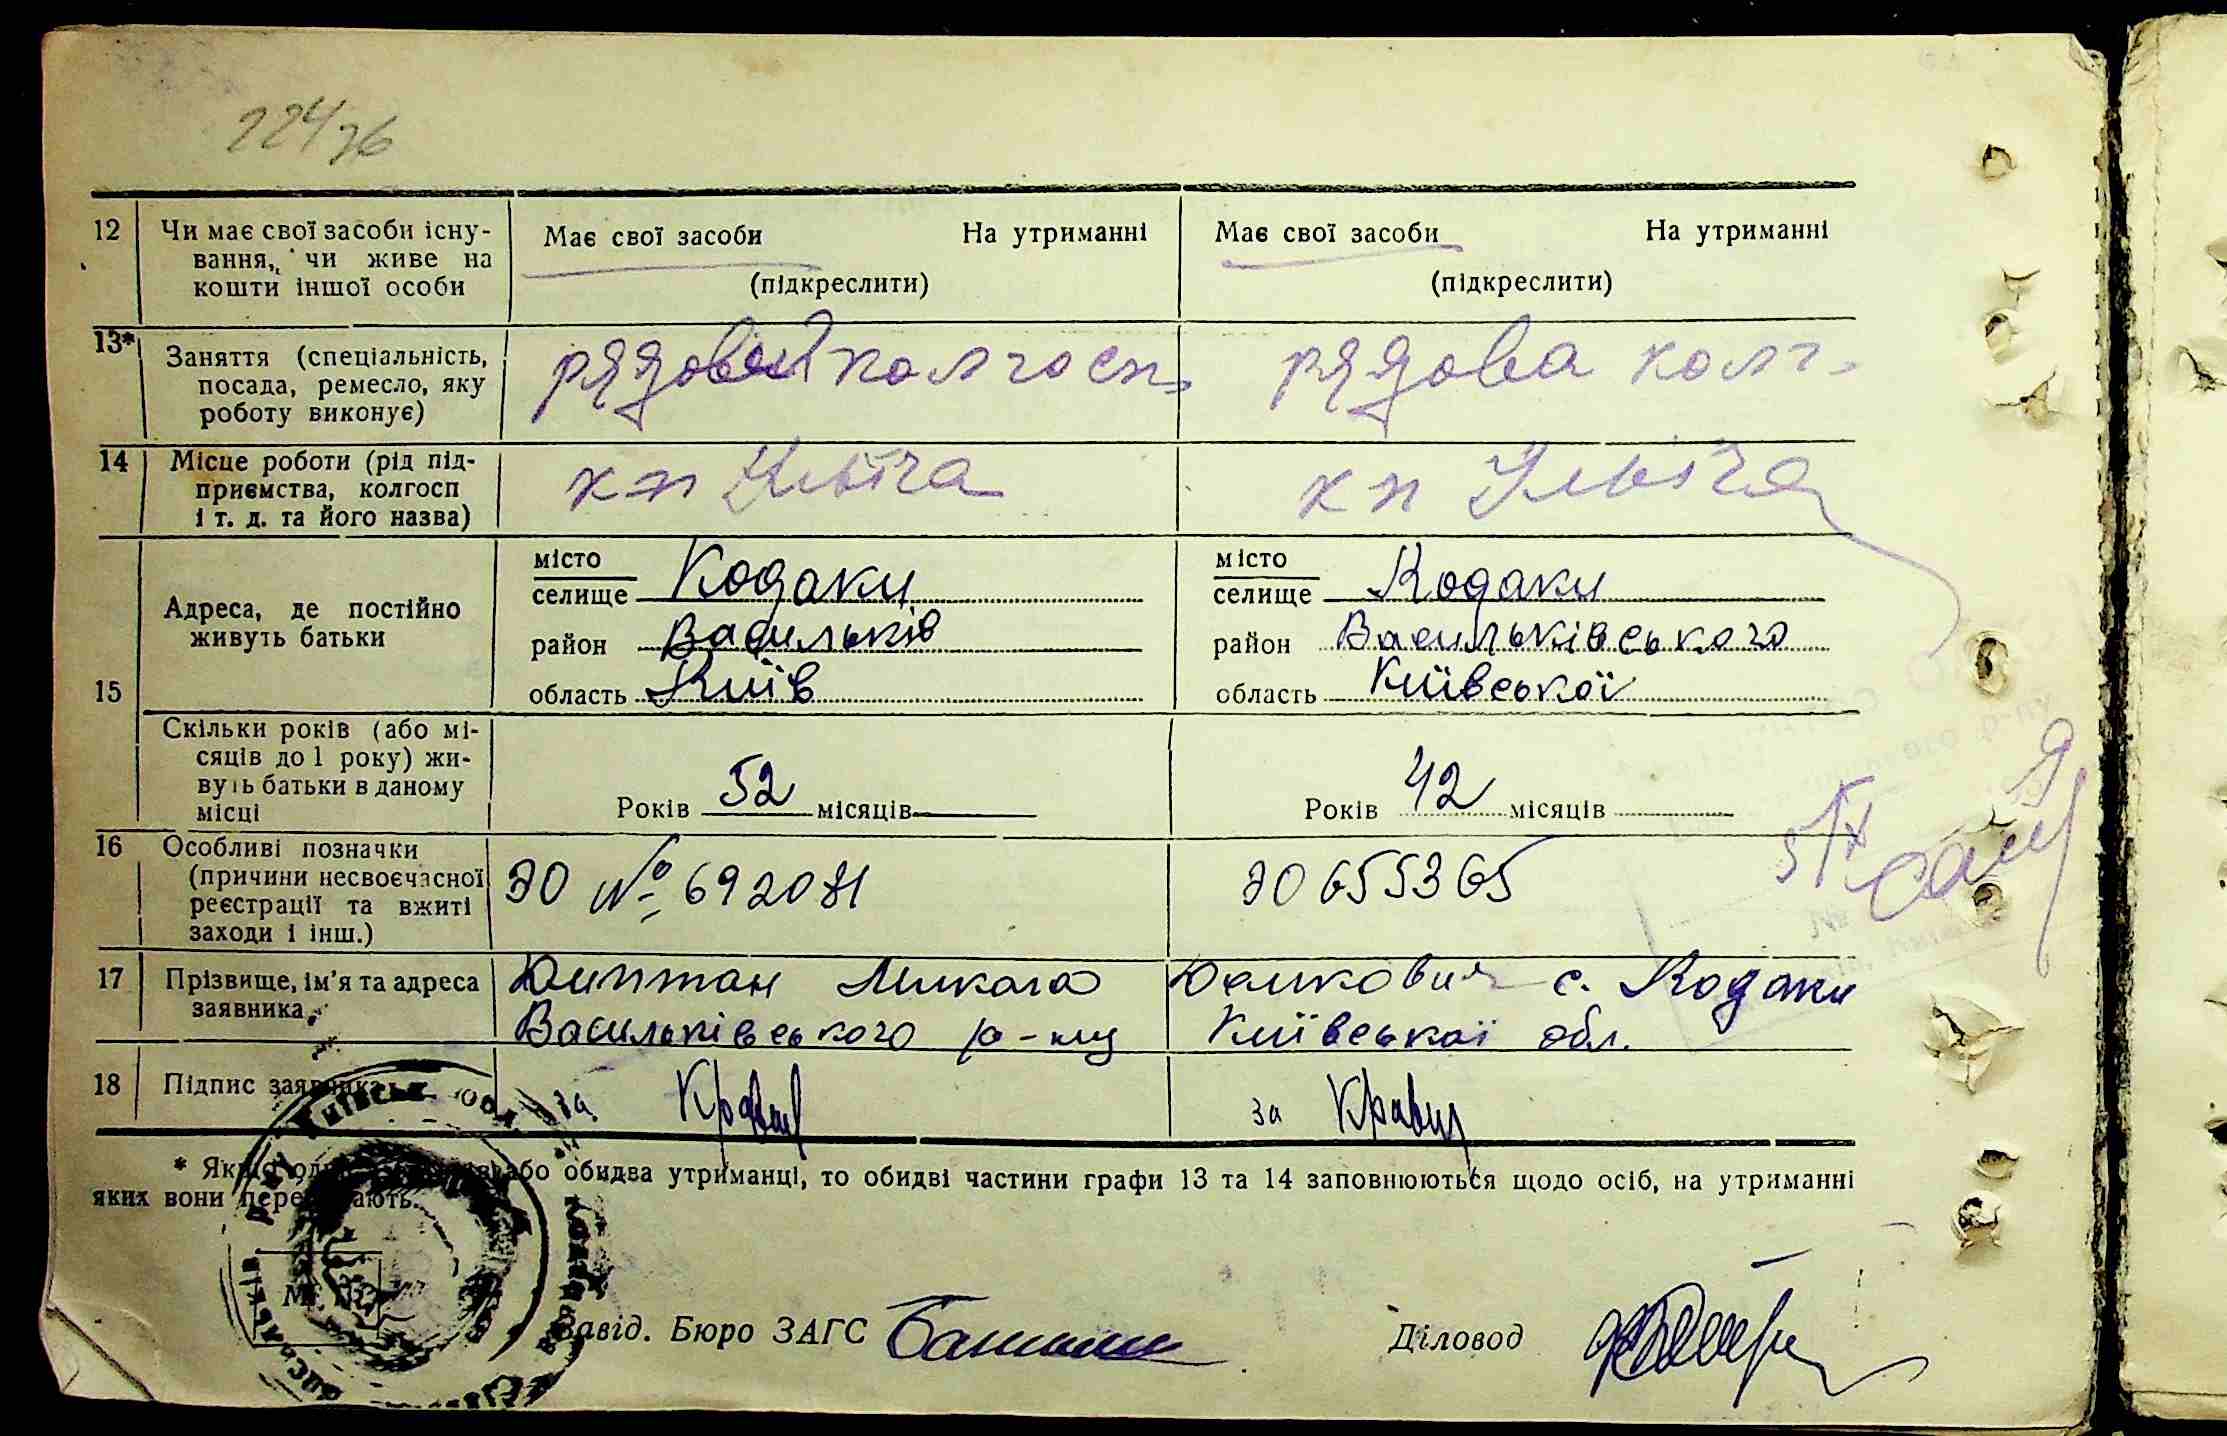 224/76
12 Чи має свої засоби існу- Має свої засоби На утриманні Має свої засоби На утриманні
вання, чи живе на
кошти іншої особи (підкреслити) (підкреслити)
13* Заняття (спеціальність, рядовой колгосп. рядова колг.
посада, ремесло, яку
роботу виконує)
14 Місце роботи (рід під- кп Ільіча кп Ільіча
приємства, колгосп
і т. д. та його назва)
15 Адреса, де постійно
живуть батьки
місто місто
селище Кодаки селище Кодаки
район Васильків район Васильківського
область Київ область Київської
Скільки років (або мі-
сяців до 1 року) жи-
вуть батьки в даному
місці Років 52 місяців Років 42 місяців
16 Особливі позначки
(причини несвоєчасної ЭЮ № 692081 ЭЮ 655365
реєстрації та вжиті
заходи і інш.)
17 Прізвище, ім'я та адреса Микола Юхимович с. Кодаки
заявника Васильківського р-ну Київської обл.
18 Підпис заявника за Кравец за Кравец
* Якщо або обидва утриманці, то обидві частини графи 13 та 14 заповнюються щодо осіб, на утриманні
яких вони перебувають.
Завід. Бюро ЗАГС
Діловод